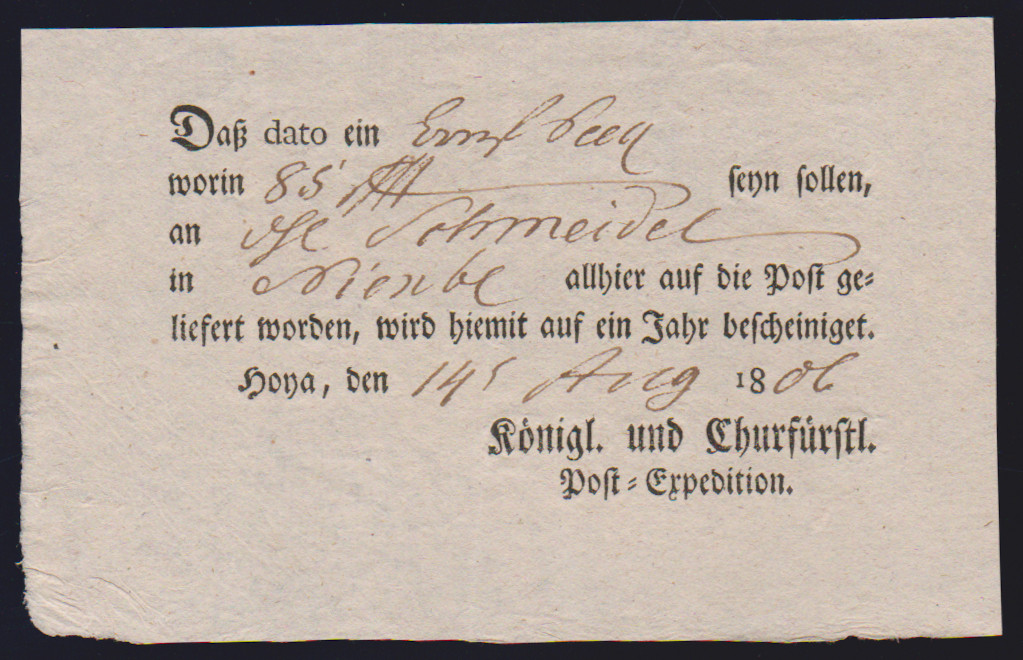 Daß dato ein
worin 85 seyn sollen,
an Schmeidel
in Nienbg allhier auf die Post ge=
liefert worden, wird hiemit auf ein Jahr bescheiniget.
Hoya, den 14 Aug 1806
Königl. und Churfürstl.
Post=Expedition.